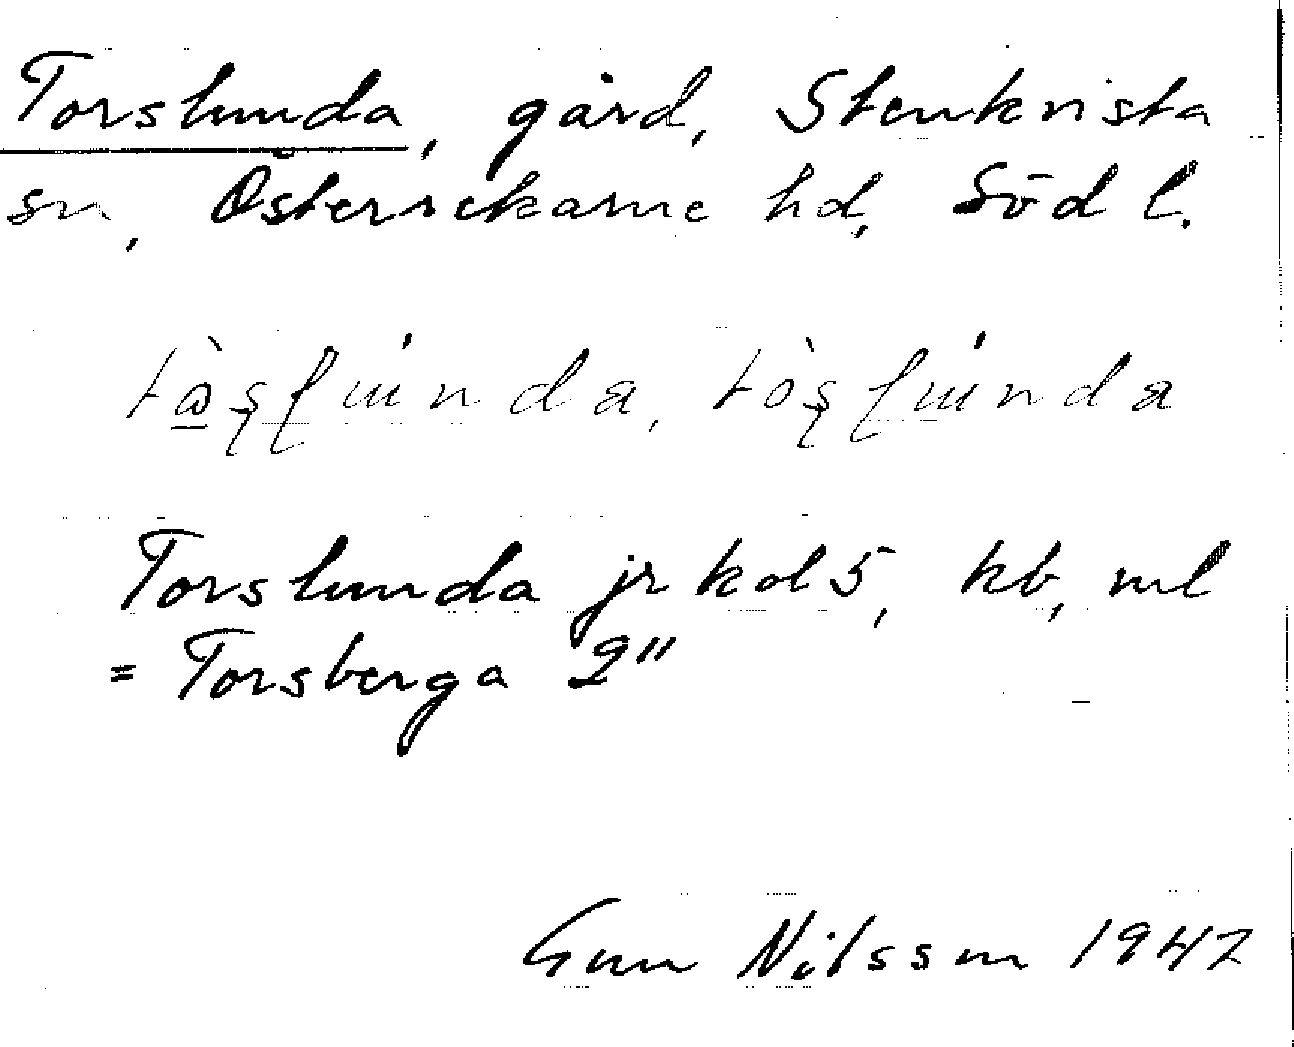 Torslunda, gård, Stenkvista
sn, Österrekarne hd, Södl.
Torslunda jr kol 5, kb, ml
= Torsberga 2"
Gun Nilsson 1947